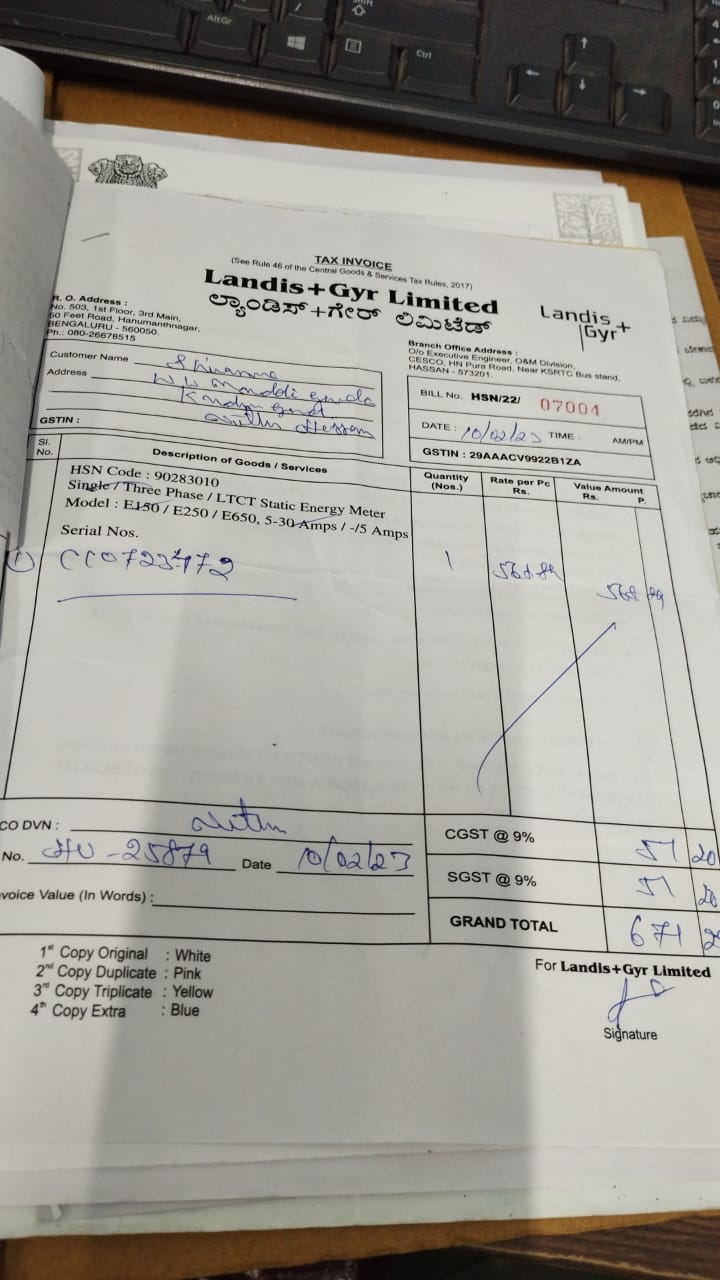 AltGr
Ctrl
TAX INVOICE
(See Rule 46 of the Central Goods & Services Tax Rules, 2017)
Landis+Gyr Limited
ಲ್ಯಾಂಡಿಸ್+ಗೇರ್ ಲಿಮಿಟೆಡ್
Landis+
Gyr
R. O. Address :
No. 503, 1st Floor, 3rd Main,
50 Feet Road, Hanumanthnagar,
BENGALURU - 560050.
Ph.: 080-26678515
Branch Office Address :
O/o Executive Engineer, O&M Division,
CESCO, HN Pura Road, Near KSRTC Bus stand,
HASSAN - 573201.
Customer Name
Address
GSTIN :
BILL No. HSN/22/ 07004
DATE : 10/02/23 TIME : AM/PM
GSTIN : 29AAACV9922B1ZA
Sl. No. Description of Goods / Services Quantity (Nos.) Rate per Pc Rs. Value Amount Rs. P.
HSN Code : 90283010
Single / Three Phase / LTCT Static Energy Meter
Model : E150 / E250 / E650, 5-30 Amps / -/5 Amps
Serial Nos.
1 CC0723472 1
CO DVN :
No. 25879 Date 10/02/23
voice Value (In Words) :
CGST @ 9% 51 20
SGST @ 9% 51 20
GRAND TOTAL 671
1st Copy Original : White
2nd Copy Duplicate : Pink
3rd Copy Triplicate : Yellow
4th Copy Extra : Blue
For Landis+Gyr Limited
Signature